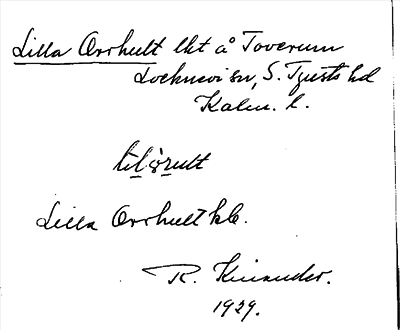 Lilla Orrhult lht å Toverum
Locknevi sn, S. Tjusts hd
Kalm. l.
Lilla Orrhult kb.
R. Kinander.
1929.